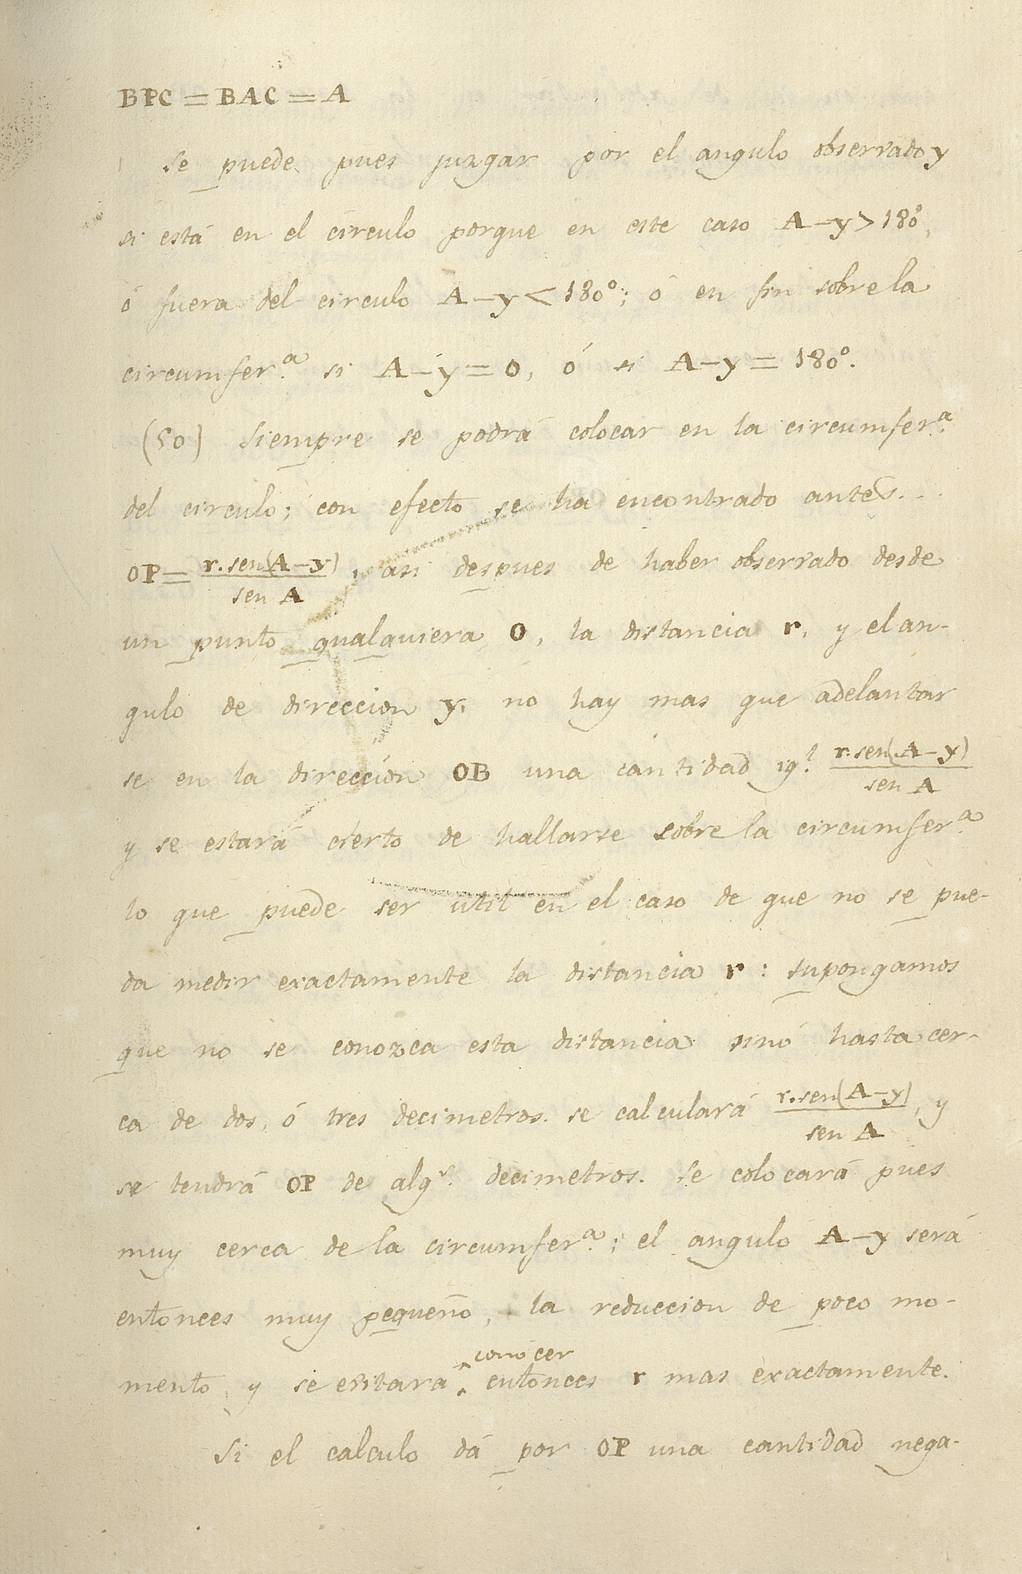 BPC = BAC = A
Se puede pues juzgar por el angulo observado y
si está en el circulo porque en este caso A-y > 180°,
ó fuera del circulo A-y < 180°; ó en fin sobre la
circumfer.ª si A-y = 0, ó si A-y = 180°.
(50) Siempre se podrá colocar en la circumfer.ª
del circulo; con efecto se ha encontrado antes...
OP = r.sen(A-y)/sen A, asi despues de haber observado desde
un punto qualquiera O, la distancia r, y el an-
gulo de direccion y, no hay mas que adelantar
se en la direccion OB una cantidad ig.l r.sen(A-y)/sen A
y se estará cierto de hallarse sobre la circumfer.ª
lo que puede ser util en el caso de que no se pue-
da medir exactamente la distancia r: supongamos
que no se conozca esta distancia sinó hasta cer-
ca de dos, ó tres decimetros. se calculará r.sen(A-y)/sen A, y
se tendrá OP de alg.s decimetros. Se colocará pues
muy cerca de la circumfer.ª; el angulo A-y será
entonces muy pequeño, la reduccion de poco mo-
conocer
mento, y se evitara entonces r mas exactamente.
Si el calculo dá por OP una cantidad nega-